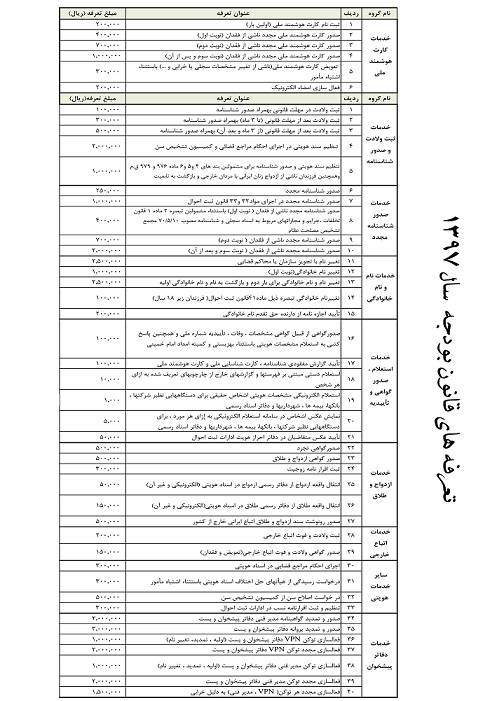 تعرفه های قانون بودجه سال ۱۳۹۷
نام گروه ردیف عنوان تعرفه مبلغ تعرفه(ریال)
خدمات کارت هوشمند ملی
۱ ثبت نام کارت هوشمند ملی (اولین بار) ۲۰۰,۰۰۰
۲ صدور کارت هوشمند ملی مجدد ناشی از فقدان (نوبت اول) ۴۰۰,۰۰۰
۳ صدور کارت هوشمند ملی مجدد ناشی از فقدان (نوبت دوم) ۷۰۰,۰۰۰
۴ صدور کارت هوشمند ملی مجدد ناشی از فقدان (نوبت سوم و پس از آن) ۱,۰۰۰,۰۰۰
۵ تعویض کارت هوشمند ملی(ناشی از تغییر مشخصات سجلی یا خرابی و ...) باستثناء اشتباه مأمور ۳۰۰,۰۰۰
۶ فعال سازی امضاء الکترونیک ۲۰۰,۰۰۰
نام گروه ردیف عنوان تعرفه مبلغ تعرفه(ریال)
خدمات ثبت ولادت و صدور شناسنامه
۱ ثبت ولادت در مهلت قانونی بهمراه صدور شناسنامه ۱۰۰,۰۰۰
۲ ثبت ولادت بعد از مهلت قانونی (تا ۳ ماه) بهمراه صدور شناسنامه ۳۰۰,۰۰۰
۳ ثبت ولادت بعد از مهلت قانونی (از ۳ ماه و بعد آن) بهمراه صدور شناسنامه ۵۰۰,۰۰۰
۴ تنظیم سند هویتی در اجرای احکام مراجع قضائی و کمیسیون تشخیص سن ۲,۰۰۰,۰۰۰
۵ تنظیم سند هویتی و صدور شناسنامه برای مشمولین بند های ۴ و۵ و۶ ماده ۹۷۶ و ۹۷۹ ق.م وهمچنین فرزندان ناشی از ازدواج زنان ایرانی با مردان خارجی و بازگشت به تابعیت ۱,۰۰۰,۰۰۰
خدمات صدور شناسنامه مجدد
۶ صدور شناسنامه مجدد ۲۵۰,۰۰۰
۷ صدور شناسنامه مجدد در اجرای مواد۳۲ و۳۳ قانون ثبت احوال ۱,۰۰۰,۰۰۰
۸ صدور شناسنامه مجدد ناشی از فقدان ( نوبت اول) باستثناء مشمولین تبصره ۳ ماده ۱ قانون تخلفات ،جرایم و مجازاتهای مربوط به اسناد سجلی و شناسنامه مصوب ۷۰/۵/۱۰ مجمع تشخیص مصلحت نظام ۴۰۰,۰۰۰
۹ صدور شناسنامه مجدد ناشی از فقدان ( نوبت دوم) ۷۰۰,۰۰۰
۱۰ صدور شناسنامه مجدد ناشی از فقدان ( نوبت سوم و بعد از آن) ۲,۰۰۰,۰۰۰
خدمات نام و نام خانوادگی
۱۱ تغییر نام با تجویز سازمان یا محاکم قضایی ۲,۵۰۰,۰۰۰
۱۲ تغییر نام خانوادگی(نوبت اول) ۱,۰۰۰,۰۰۰
۱۳ تغییر نام و نام خانوادگی برای بار دوم و بازگشت به نام و نام خانوادگی اولیه ۲,۵۰۰,۰۰۰
۱۴ تغییرنام خانوادگی تبصره ذیل ماده۴۱قانون ثبت احوال( فرزندان زیر ۱۸ سال) ۱۰۰,۰۰۰
۱۵ تأیید اجازه نامه از دارنده حق تقدم نام خانوادگی ۲۰۰,۰۰۰
خدمات استعلام ، صدور گواهی و تأییدیه
۱۶ صدورگواهی از قبیل گواهی مشخصات ، وفات ، تأییدیه شماره ملی و همچنین پاسخ کتبی به استعلام مشخصات هویتی باستثناء بهزیستی و کمیته امداد امام خمینی ۱۰۰,۰۰۰
۱۷ تأیید گزارش مفقودی شناسنامه ، کارت شناسایی ملی و کارت هوشمند ملی ۱۰۰,۰۰۰
۱۸ استعلام دستی مبتنی بر فهرستها و گزارشهای خارج از چارچوبهای تعریف شده به ازای هر شخص ۱۰,۰۰۰
۱۹ استعلام الکترونیکی مشخصات هویتی اشخاص حقیقی برای دستگاههایی نظیر شرکتها ، بانکها، بیمه ها ، شهرداریها و دفاتر اسناد رسمی ۱,۰۰۰
۲۰ نمایش عکس اشخاص در سامانه استعلام الکترونیکی به ازای هر مورد ، برای دستگاههایی نظیر شرکتها ، بانکها، بیمه ها ، شهرداریها و دفاتر اسناد رسمی ۵,۰۰۰
۲۱ تأیید عکس متقاضیان در دفاتر احراز هویت ادارات ثبت احوال ۵۰,۰۰۰
خدمات ازدواج و طلاق
۲۲ صدور گواهی تجرد ۵۰۰,۰۰۰
۲۳ صدور گواهی ازدواج و طلاق ۵۰۰,۰۰۰
۲۴ ثبت اقرار نامه زوجیت ۳۰۰,۰۰۰
۲۵ انتقال واقعه ازدواج از دفاتر رسمی ازدواج در اسناد هویتی (الکترونیکی و غیر آن) ۵۰,۰۰۰
۲۶ انتقال واقعه طلاق از دفاتر رسمی طلاق در اسناد هویتی(الکترونیکی و غیر آن) ۱۵۰,۰۰۰
۲۷ صدور رونوشت سند ازدواج و طلاق اتباع ایرانی خارج از کشور ۵۰۰,۰۰۰
خدمات اتباع خارجی
۲۸ ثبت ولادت و فوت اتباع خارجی ۲۰۰,۰۰۰
۲۹ صدور گواهی ولادت و فوت اتباع خارجی(تعویض و فقدان) ۱۵۰,۰۰۰
سایر خدمات هویتی
۳۰ اجرای احکام مراجع قضایی در اسناد هویتی ۳۰۰,۰۰۰
۳۱ درخواست رسیدگی از هیأتهای حل اختلاف اسناد هویتی باستثناء اشتباه مأمور ۳۰۰,۰۰۰
۳۲ در خواست اصلاح سن از کمیسیون تشخیص سن ۵۰۰,۰۰۰
۳۳ تنظیم و ثبت اقرارنامه نسب در ادارات ثبت احوال ۳۰۰,۰۰۰
خدمات دفاتر پیشخوان
۳۴ صدور و تمدید گواهینامه مدیر فنی دفاتر پیشخوان و پست ۲,۰۰۰,۰۰۰
۳۵ صدور و تمدید پروانه دفاتر پیشخوان و پست ۳,۰۰۰,۰۰۰
۳۶ فعالسازی توکن VPN دفاتر پیشخوان و پست (اولیه ، تمدید، تغییر نام) ۱,۰۰۰,۰۰۰
۳۷ فعالسازی مجدد توکن VPN دفاتر پیشخوان و پست ۲,۰۰۰,۰۰۰
۳۸ فعالسازی توکن مدیر فنی دفاتر پیشخوان و پست (اولیه ، تمدید ، تغییر نام) ۱,۰۰۰,۰۰۰
۳۹ فعالسازی مجدد توکن مدیر فنی دفاتر پیشخوان و پست ۲,۰۰۰,۰۰۰
۴۰ فعالسازی مجدد هر توکن( VPN ، مدیر فنی) به دلیل خرابی ۱,۵۰۰,۰۰۰